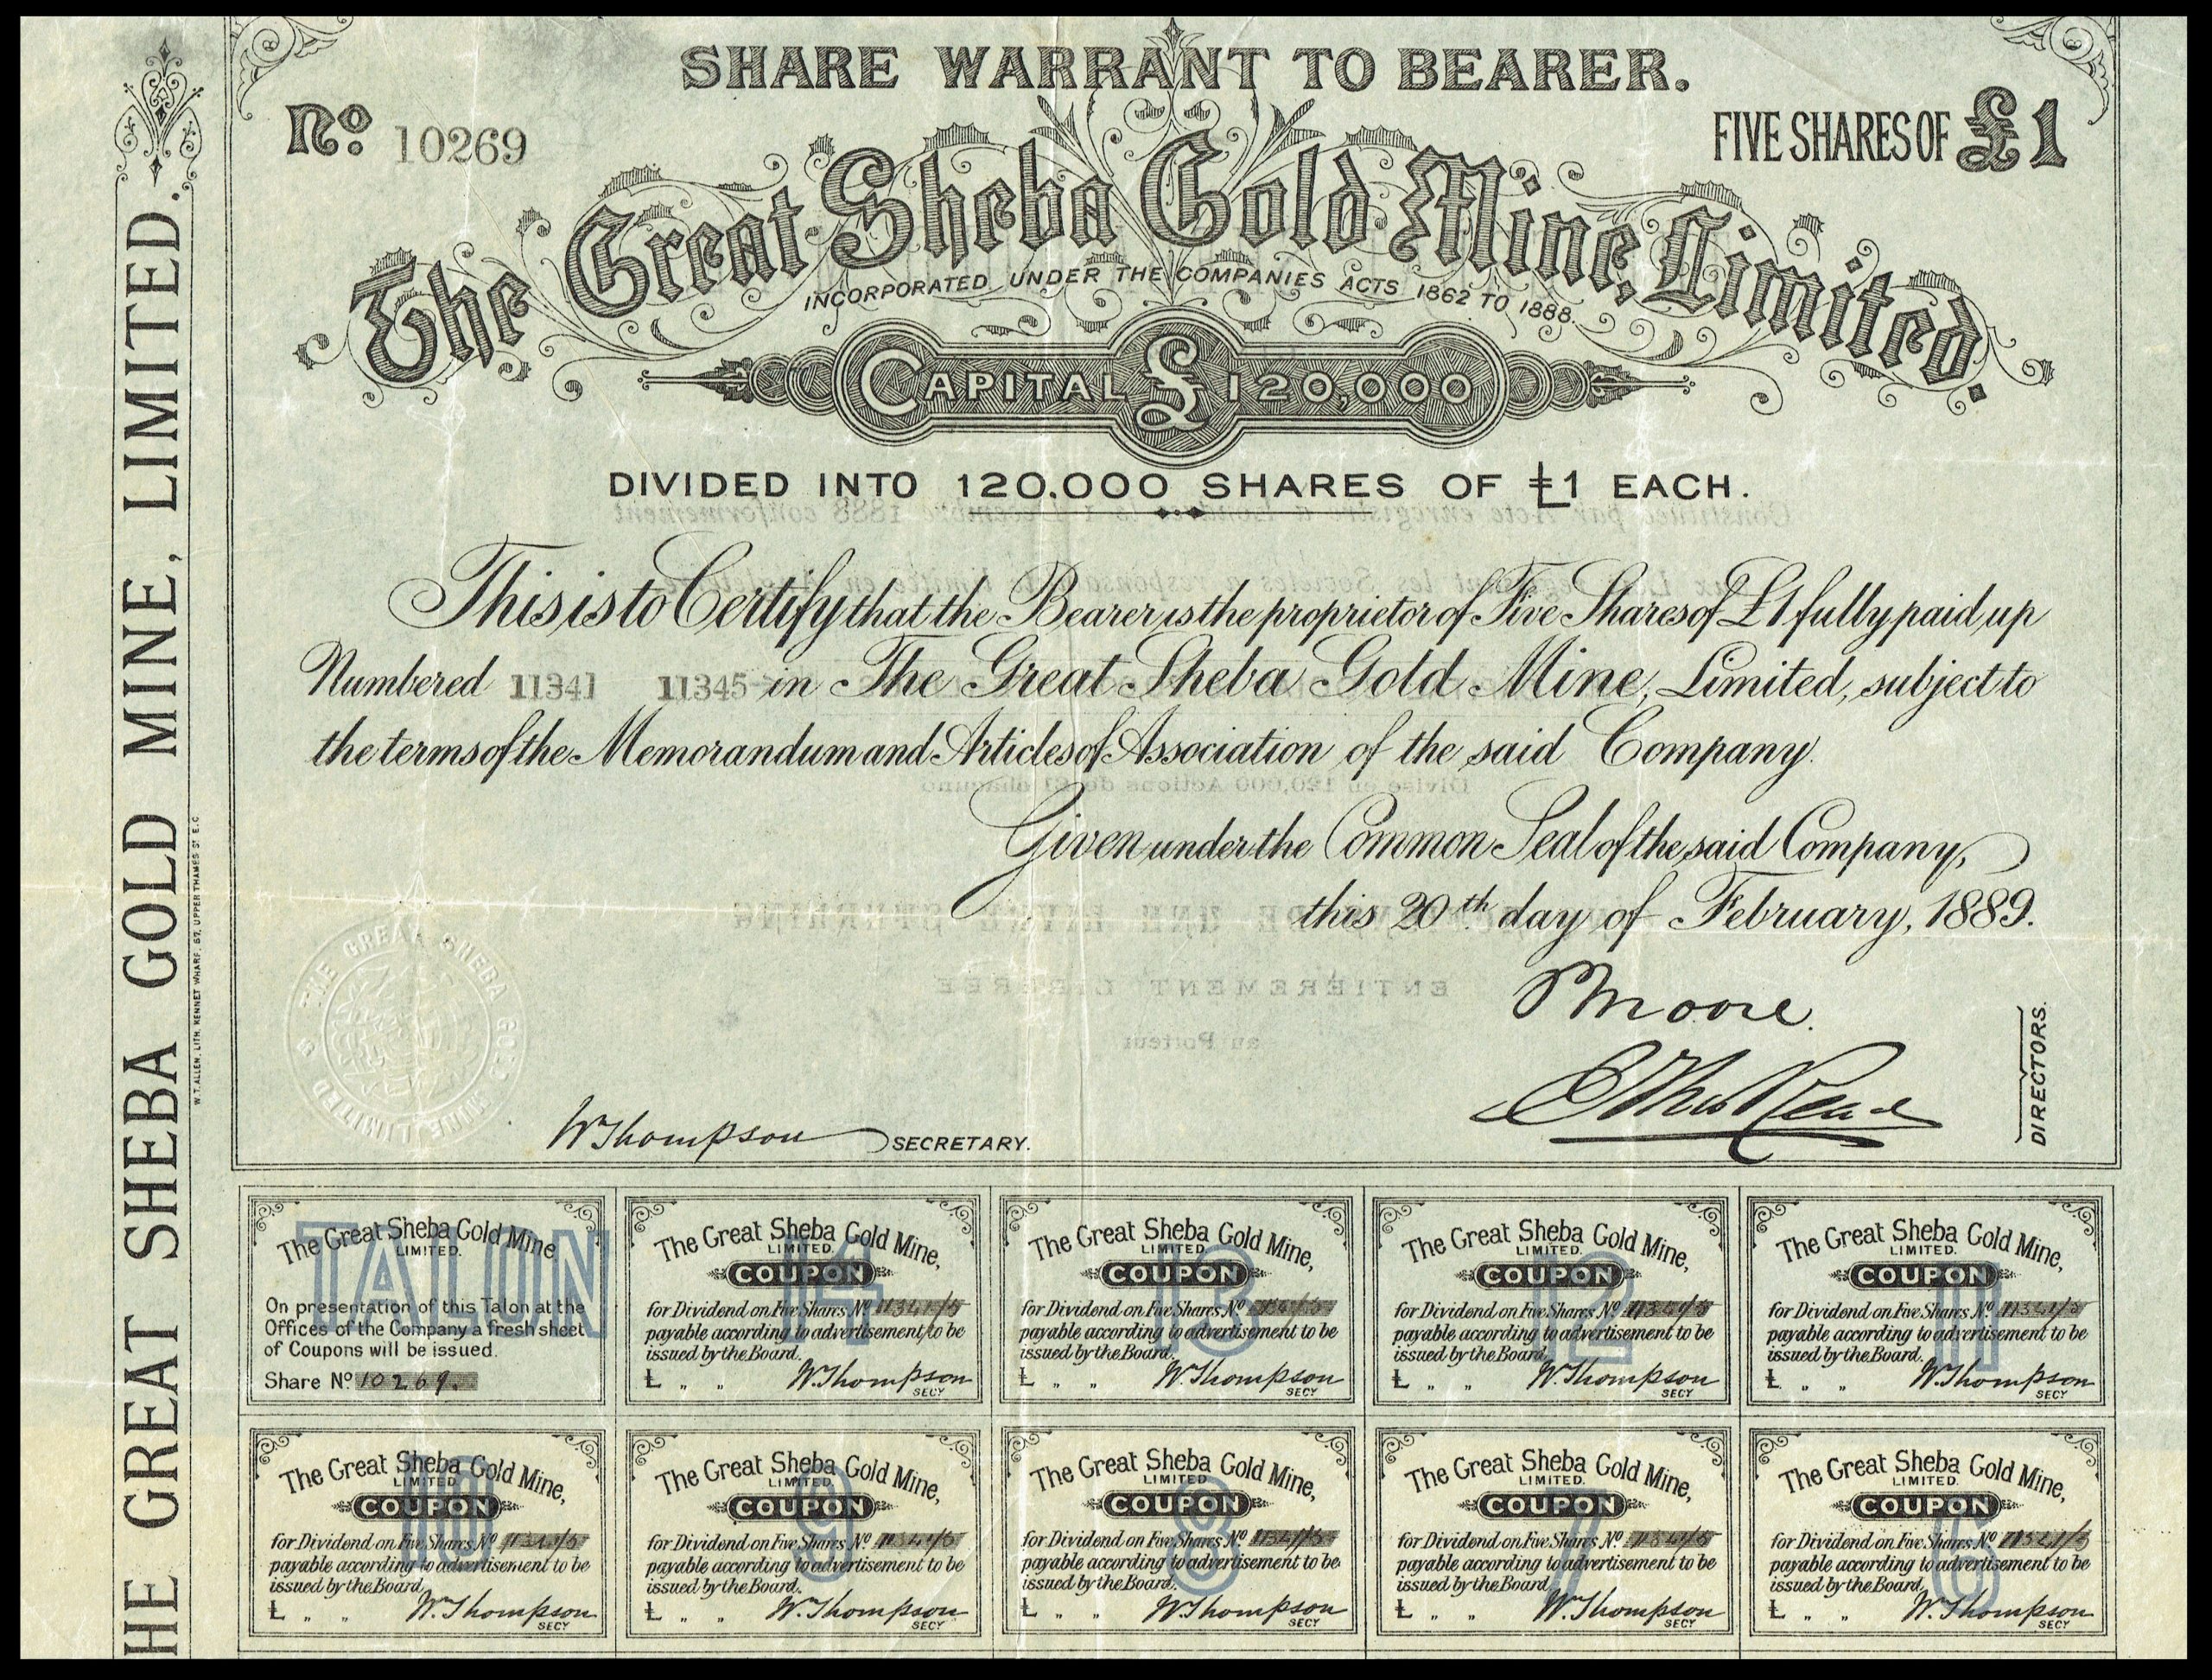 SHARE WARRANT TO BEARER.
No. 10269
FIVE SHARES OF £1
The Great Sheba Gold Mine, Limited.
INCORPORATED UNDER THE COMPANIES ACTS 1862 TO 1888.
CAPITAL £120,000
DIVIDED INTO 120.000 SHARES OF £1 EACH.
This is to Certify that the Bearer is the proprietor of Five Shares of £1 fully paid up
Numbered 11341 11345 in The Great Sheba Gold Mine, Limited, subject to
the terms of the Memorandum and Articles of Association of the said Company.
Given under the Common Seal of the said Company,
this 20th day of February, 1889.
P Moore.
DIRECTORS.
W Thompson SECRETARY.
THE GREAT SHEBA GOLD MINE LIMITED
HE GREAT SHEBA GOLD MINE, LIMITED.
W.T. ALLEN, LITH. KENNET WHARF, 67, UPPER THAMES ST E.C
TALON
The Great Sheba Gold Mine
LIMITED.
On presentation of this Talon at the
Offices of the Company a fresh sheet
of Coupons will be issued.
Share No. 10269.
14
The Great Sheba Gold Mine,
LIMITED.
COUPON
for Dividend on Five Shares No. 11341/5
payable according to advertisement to be
issued by the Board.
£ " "
W. Thompson
SECY
13
The Great Sheba Gold Mine,
LIMITED.
COUPON
for Dividend on Five Shares No. 11341/5
payable according to advertisement to be
issued by the Board.
£ " "
W. Thompson
SECY
12
The Great Sheba Gold Mine,
LIMITED.
COUPON
for Dividend on Five Shares No. 11341/5
payable according to advertisement to be
issued by the Board.
£ " "
W. Thompson
SECY
11
The Great Sheba Gold Mine,
LIMITED.
COUPON
for Dividend on Five Shares No. 11341/5
payable according to advertisement to be
issued by the Board.
£ " "
W. Thompson
SECY
10
The Great Sheba Gold Mine,
LIMITED.
COUPON
for Dividend on Five Shares No. 11341/5
payable according to advertisement to be
issued by the Board.
£ " "
W. Thompson
SECY
9
The Great Sheba Gold Mine,
LIMITED.
COUPON
for Dividend on Five Shares No. 11341/5
payable according to advertisement to be
issued by the Board.
£ " "
W. Thompson
SECY
8
The Great Sheba Gold Mine,
LIMITED.
COUPON
for Dividend on Five Shares No. 11341/5
payable according to advertisement to be
issued by the Board.
£ " "
W Thompson
SECY
7
The Great Sheba Gold Mine,
LIMITED.
COUPON
for Dividend on Five Shares No. 11341/5
payable according to advertisement to be
issued by the Board.
£ " "
W. Thompson
SECY
6
The Great Sheba Gold Mine,
LIMITED.
COUPON
for Dividend on Five Shares No. 11341/5
payable according to advertisement to be
issued by the Board.
£ " "
W. Thompson
SECY